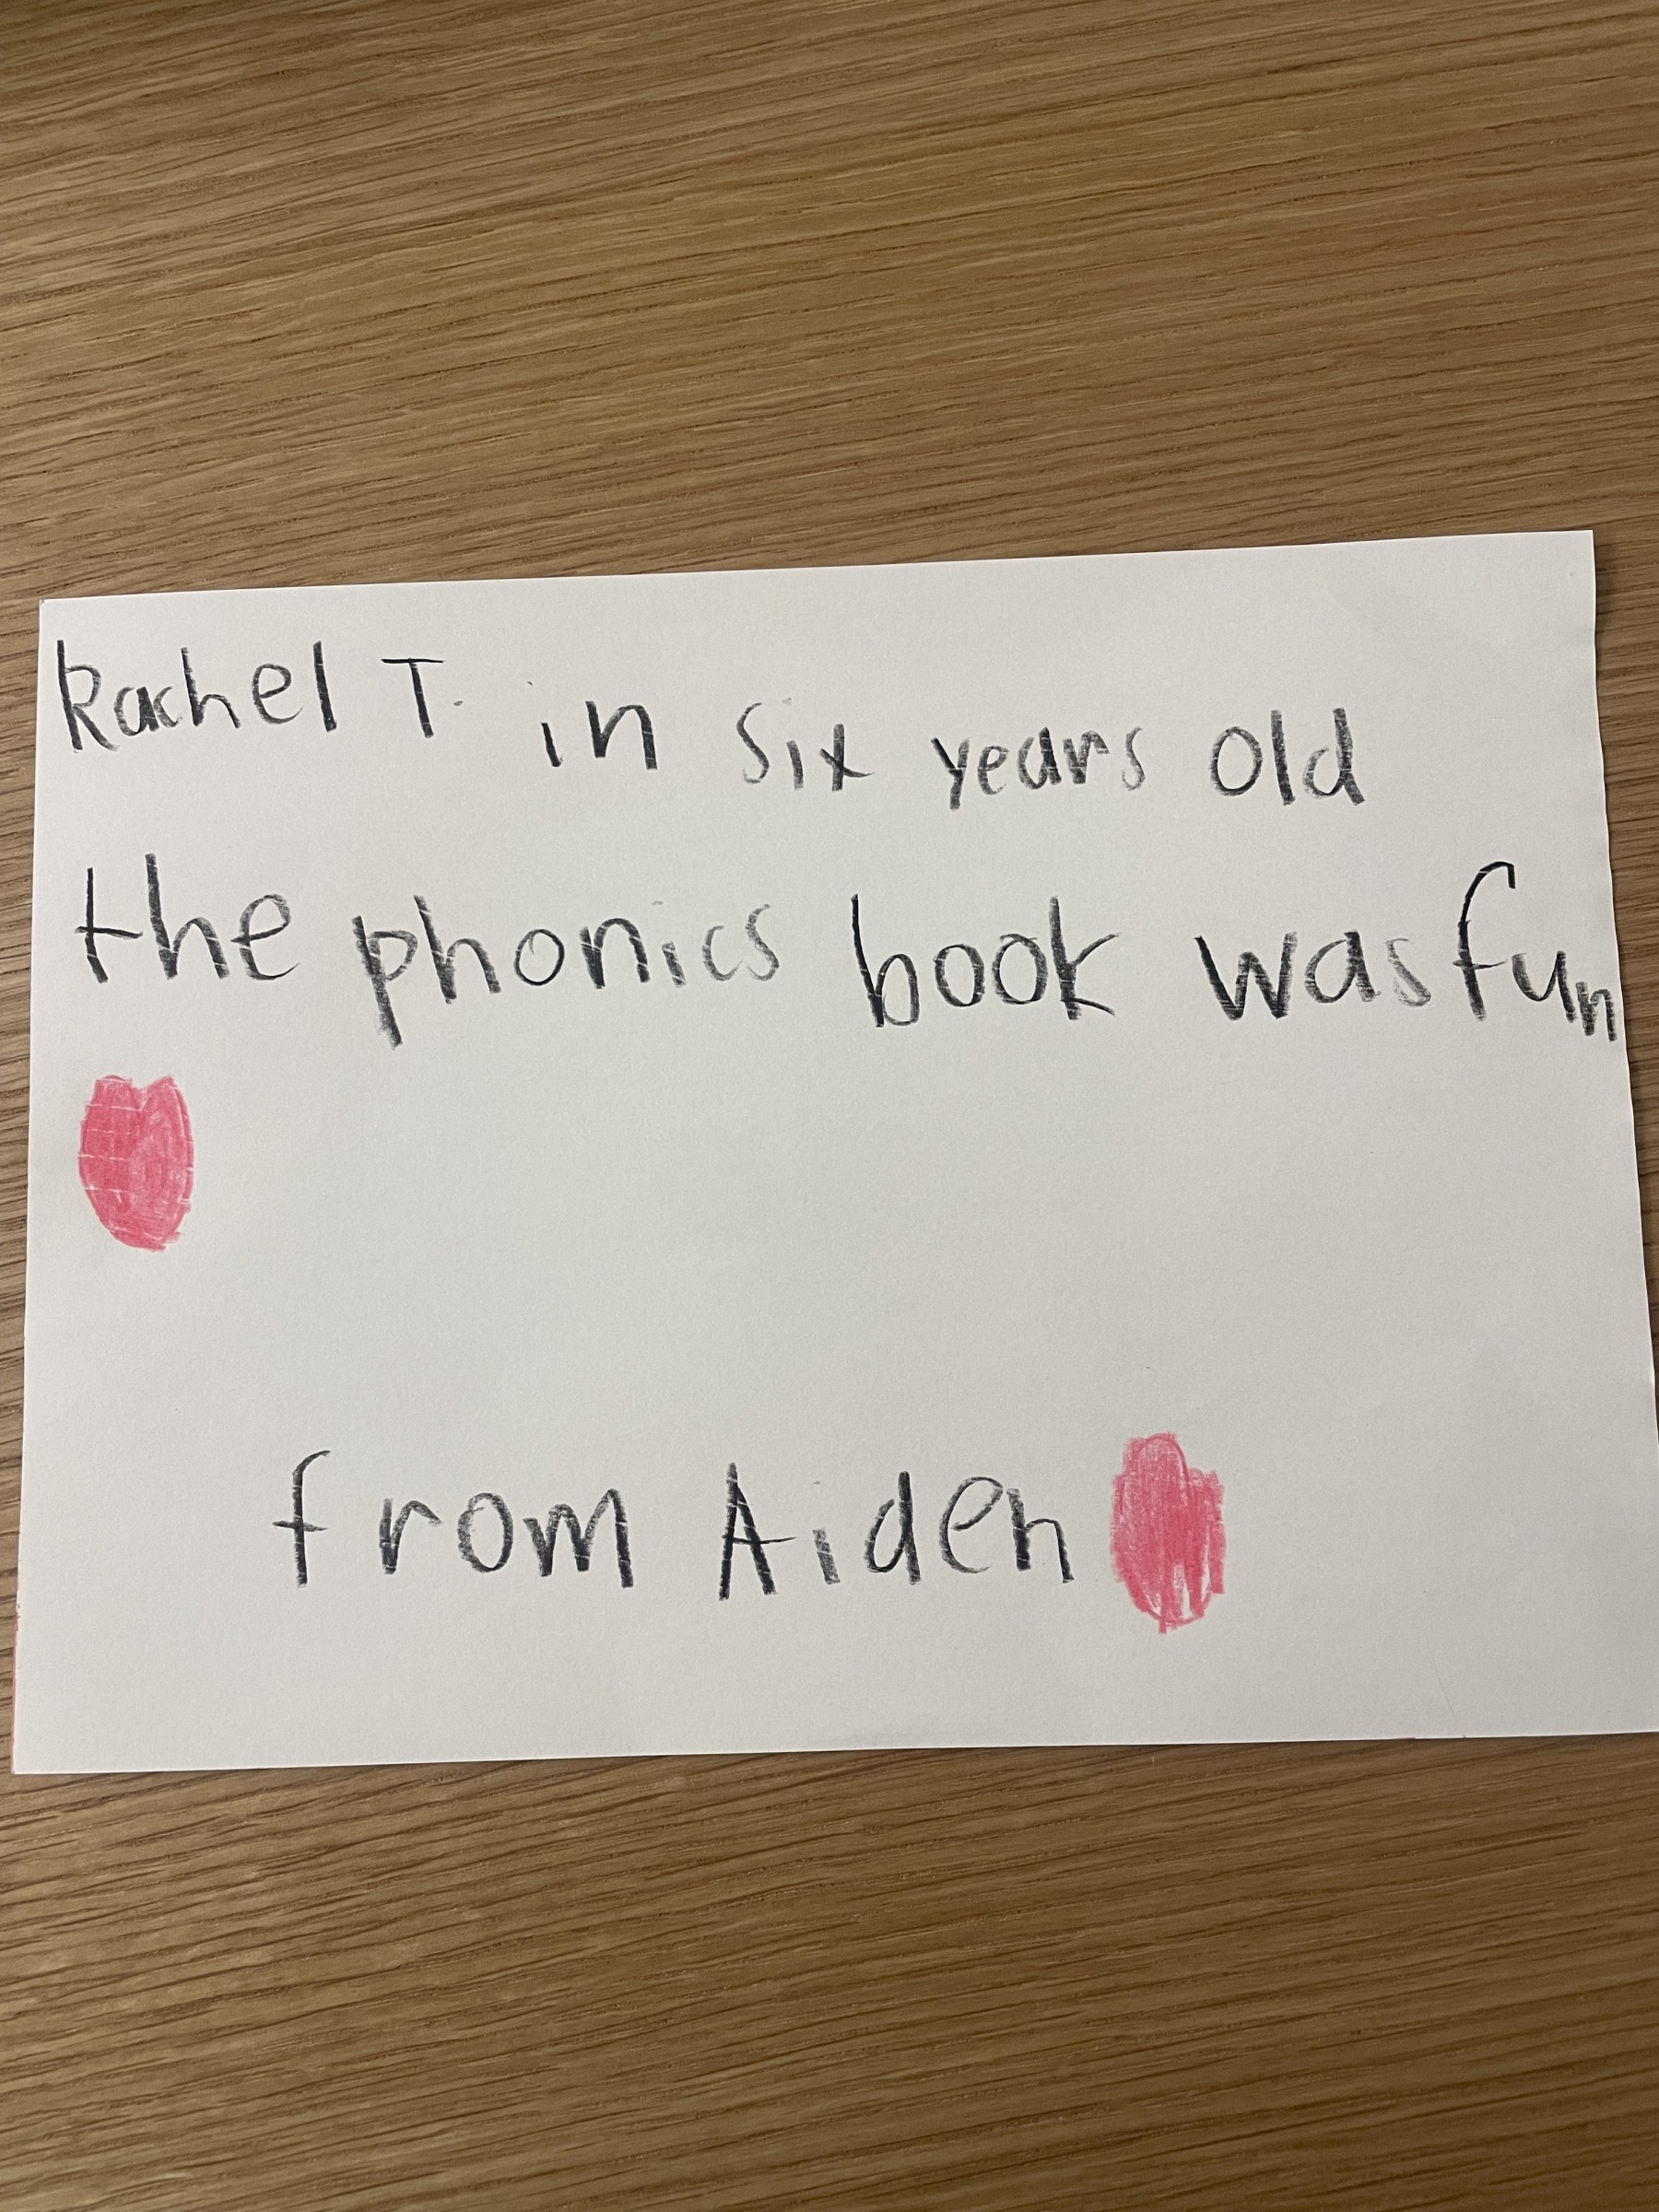 Rachel T. in six years old
the phonics book was fun
from Aiden